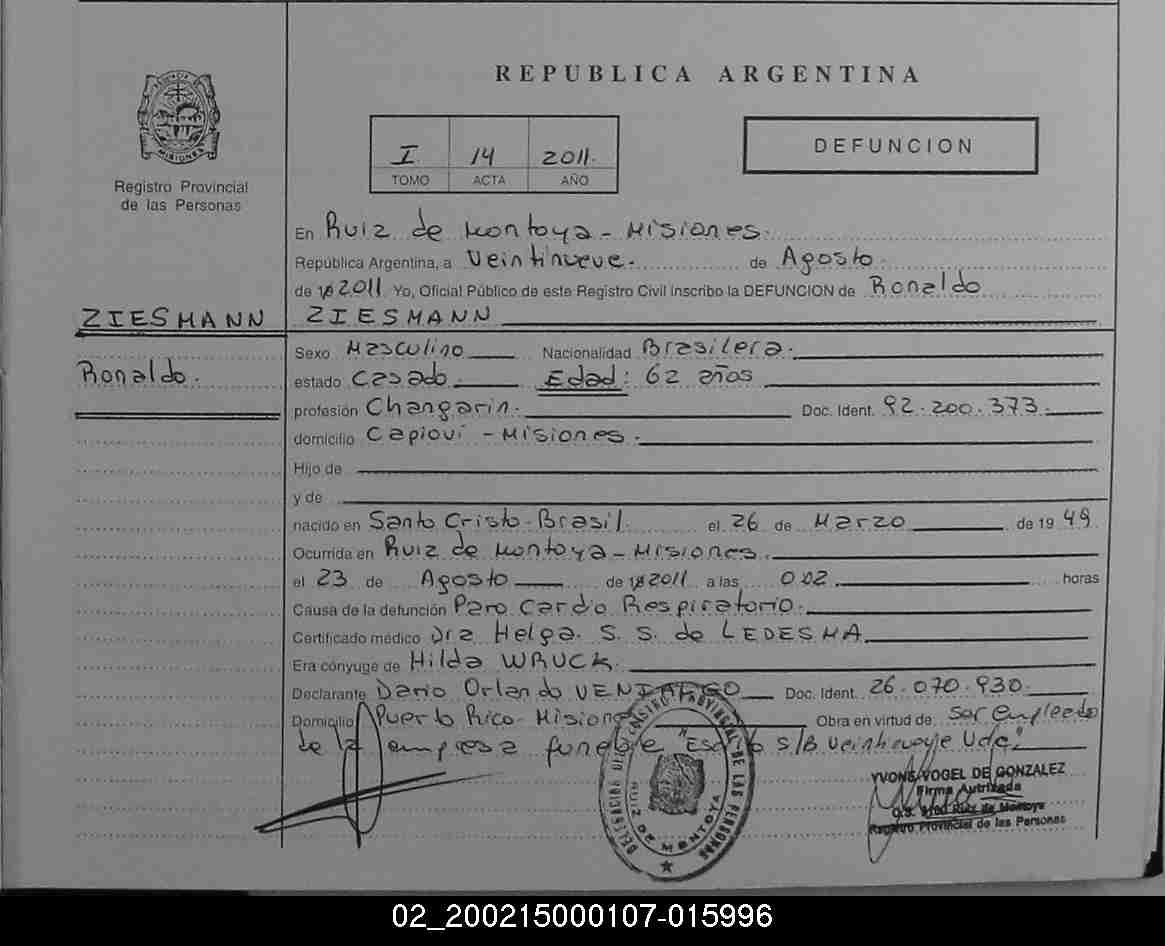 REPUBLICA ARGENTINA
DEFUNCION
I 14 2011.
TOMO ACTA AÑO
MISIONES
Registro Provincial
de las Personas
En Ruiz de Montoya - Misiones.
República Argentina, a Veintinueve. de Agosto.
de 2011. Yo, Oficial Público de este Registro Civil inscribo la DEFUNCION de Ronaldo
ZIESMANN
ZIESMANN
Ronaldo.
Sexo Masculino Nacionalidad Brasilera.
estado Casado. Edad: 62 años
profesión Changarin. Doc. Ident. 92.200.373.
domicilio Capioví - Misiones.
Hijo de
y de
nacido en Santo Cristo - Brasil. el 26 de Marzo de 19 49
Ocurrida en Ruiz de Montoya - Misiones.
el 23 de Agosto de 2011 a las horas
Causa de la defunción Paro Cardio Respiratorio.
Certificado médico Dra Helga. S. S. de LEDESMA
Era cónyuge de Hilda WRUCK.
Declarante Dario Orlando Doc. Ident. 26.070.930.
Domicilio Puerto Rico - Misiones Obra en virtud de ser empleado
de la empresa funebre S/B
DELEGACION DEL REGISTRO PROVINCIAL DE LAS PERSONAS
RUIZ DE MONTOYA
YVONE VOGEL DE GONZALEZ
Firma Autrizada
Ruiz de Montoya
Registro Provincial de las Personas
02_200215000107-015996